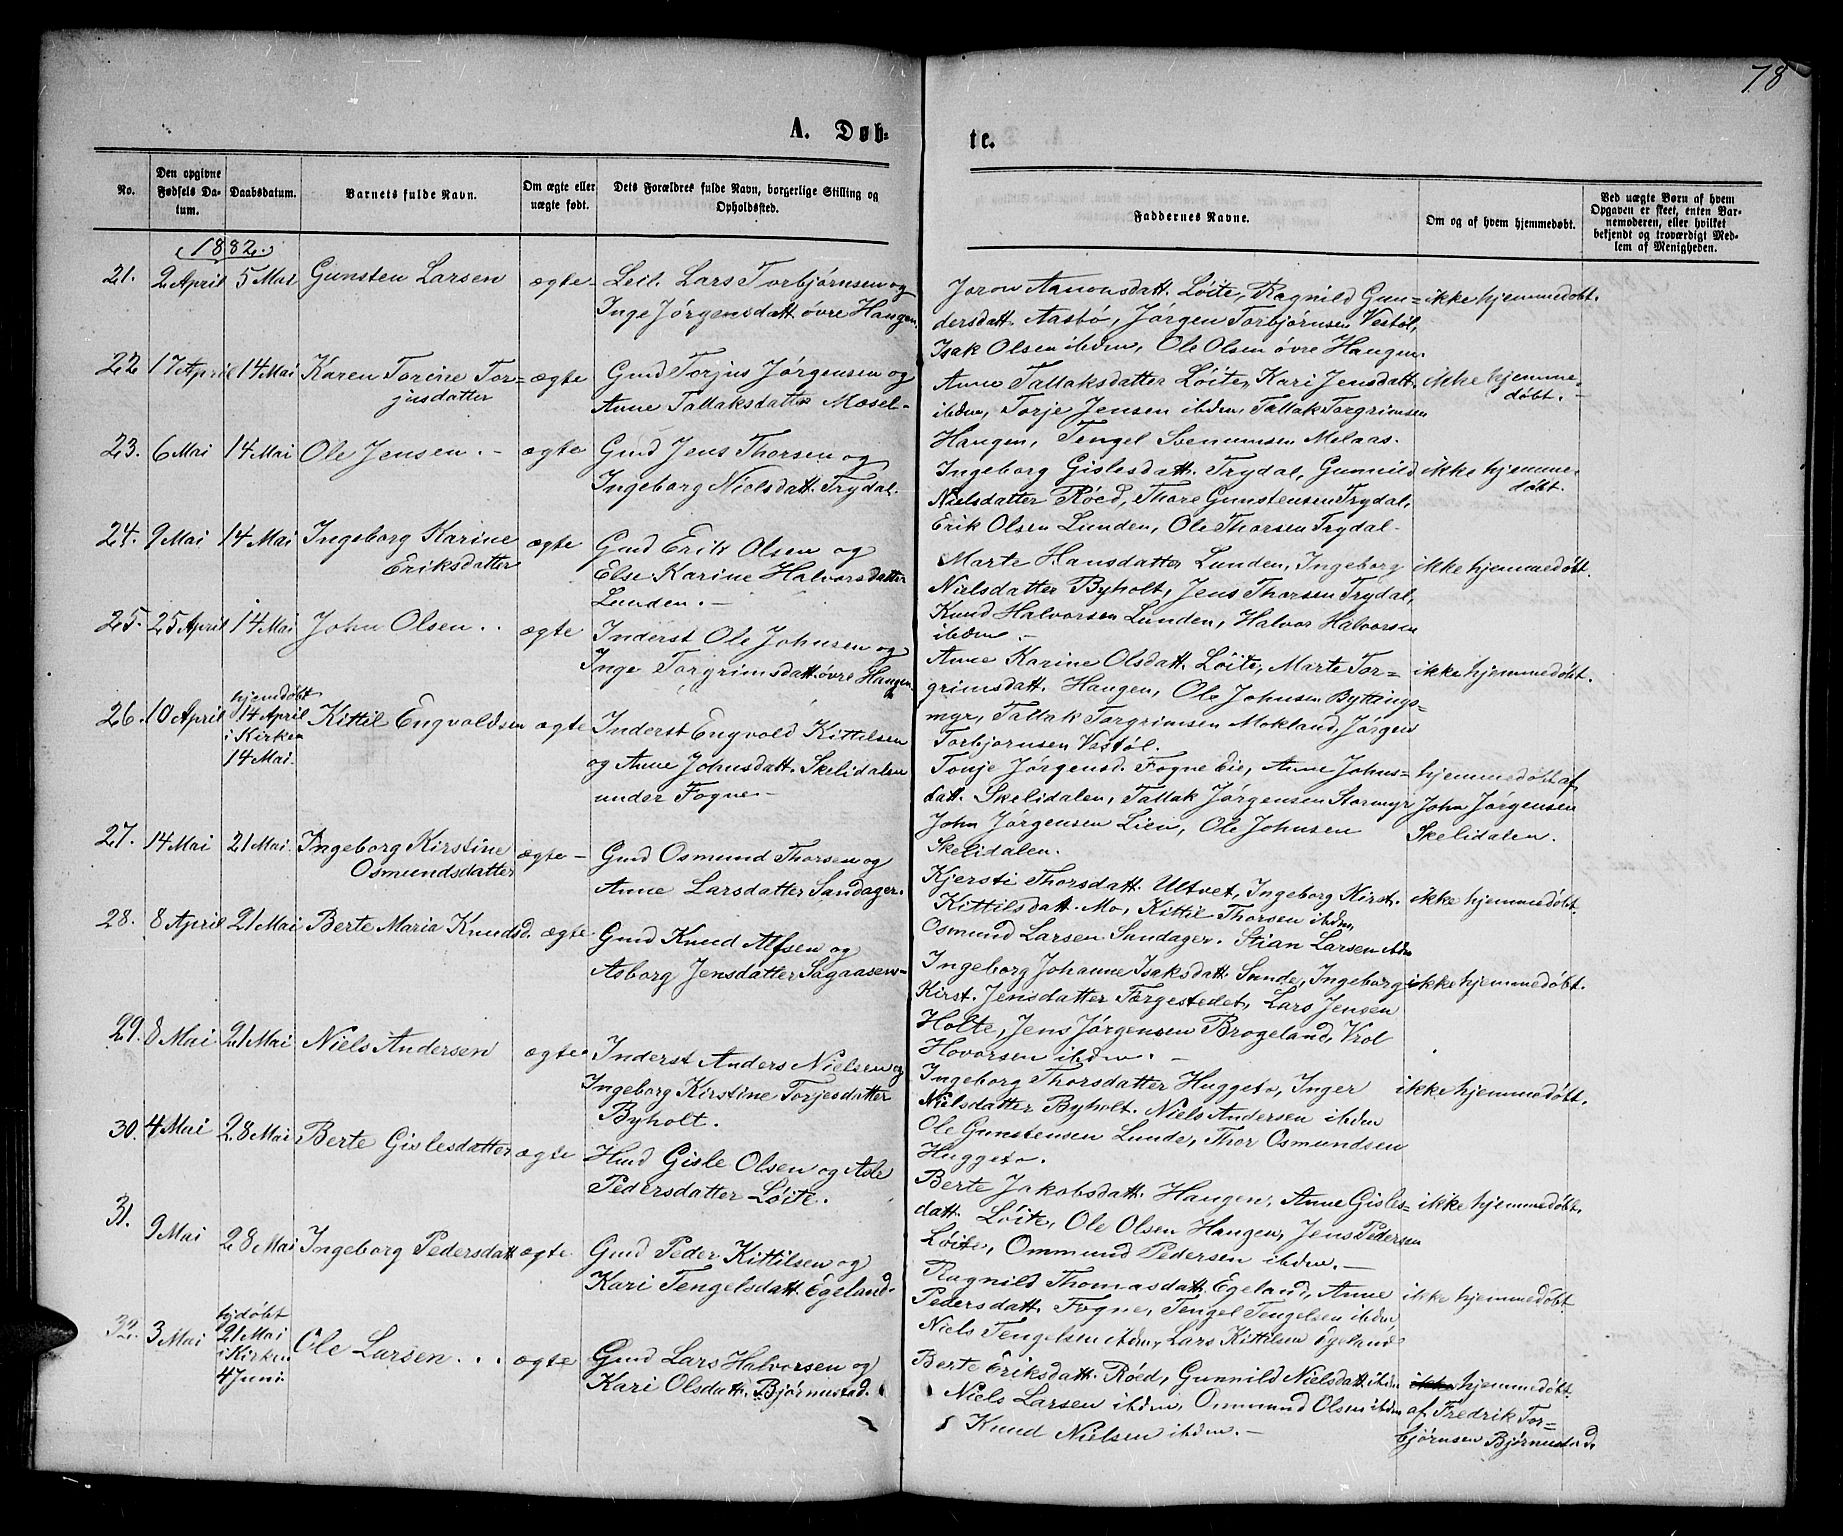 78
A. Døb-
te.
No.
Den opgivne Fødsels Da-
tum.
Daabsdatum.
Barnets fulde Navn.
Om ægte eller
uægte født.
Dets Forældres fulde Navn, borgerlige Stilling og
Opholdssted.
Faddernes Navne.
Om og af hvem hjemmedøbt.
Ved uægte Børn af hvem
Opgaven er skeet, enten Bar-
nemoderen, eller hvilket
bekjendt og troværdigt Med-
lem af Menigheden.
1882.
21. 2 April 5 Mai Gunsten Larsen ægte- Leil. Lars Torbjørnsen og
Inge Jørgensdatt. övre Haugen.
Joron Aanonsdatt. Löite, Ragnild Gun= ikke hjemmedøbt.
dersdatt. Aasbö, Jørgen Torbjørnsen Vestöl,
Isak Olsen ibdm, Ole Olsen övre Haugen.
22 17 April 14 Mai Karen Torine Tor= ægte Gmd Torjus Jörgensen og
jusdatter Anne Tallaksdatter Mæsel-
Anne Tallaksdatter Löite, Kari Jensdatt. ikke hjemme-
døbt.-
ibdm, Torje Jensen ibdm, Tallak Torgrimsen
Haugen, Tengel Melaas.
23. 6 Mai 14 Mai Ole Jensen.- ægte Gmd Jens Thorsen og
Ingeborg Nielsdatt. Trydal.
Ingeborg Gislesdatt. Trydal, Gunnild ikke hjemme-
døbt.
Nielsdatter Röed, Thore Gunstensen Trydal,
Erik Olsen Lunden, Ole Thorsen Trydal-
24. 9 Mai 14 Mai Ingeborg Karine ægte Gmd Erik Olsen og
Eriksdatter Else Karine Halvorsdatter
Lunden.-
Marte Hansdatter Lunden, Ingeborg ikke hjemmedøbt.
Nielsdatter Byholt, Jens Thorsen Trydal,
Knud Halvorsen Lunden, Halvor Halvorsen
ibdm.-
25. 25 April 14 Mai John Olsen.. ægte Inderst Ole Johnsen og
Inge Torgrimsdatt. övre Haugen
Anne Karine Olsdatt. Löite, Marte Tor= ikke hjemmedøbt.
grimsdatt. Haugen, Ole Johnsen Byttings=
myr, Tallak Torgrimsen Mokland, Jørgen
Torbjørnsen Vestöl.
26. 10 April hjemdøbt
14 April
i Kirken
14 Mai. Kittil Engvoldsen ægte Inderst Engvold Kittilsen
og Anne Johnsdatt. Skelidalen
under Fogne-
Tonje Jørgensd. Fogne Eie, Anne Johns= hjemmedøbt af
datt. Skelidalen, Tallak Jørgensen Stormyr John Jørgensen
John Jørgensen Lien, Ole Johnsen Skelidalen.
Skelidalen.
27. 14 Mai 21 Mai. Ingeborg Kirstine ægte- Gmd Osmund Thorsen og
Osmundsdatter Anne Larsdatter Sandager.
Kjersti Thorsdatt. Ultvet, Ingeborg Kirst. ikke hjemmedøbt.
Kittilsdatt. Mo, Kittil Thorsen ibdm,
Osmund Larsen Sandager. Stian Larsen ibdm
28. 8 April 21 Mai Berte Maria Knudsd. ægte Gmd Knud Alfsen og
Asborg Jensdatter Sagaasen-
Ingeborg Johanne Isaksdatt. Sunde, Ingeborg ikke hjemmedøbt.
Kirst. Jensdatter Færgestedet, Lars Jensen
Holte, Jens Jørgensen Brogeland, Vrol
Hovorsen ibdm.-
29. 8 Mai 21 Mai Niels Andersen ægte Inderst Anders Nielsen og
Ingeborg Kirstine Torjesdatter
Byholt.
Ingeborg Thorsdatter Huggetö, Inger ikke hjemmedøbt.
Nielsdatter Byholt. Niels Andersen ibdm
Ole Gunstensen Lunde, Thor Osmundsen
Huggetö.
30. 4 Mai 28 Mai Berte Gislesdatter ægte Hmd Gisle Olsen og Asle
Pedersdatter Löite.
Berte Jakobsdatt. Haugen, Anne Gisles= ikke hjemmedøbt.
datt. Löite, Ole Olsen Haugen, Jens Pedersen
Löite, Ommund Pedersen ibdm.-
31. 9 Mai 28 Mai Ingeborg Pedersdatt. ægte Gmd Peder Kittilsen og
Kari Tengelsdatt. Egeland.
Ragnild Thomasdatt. Egeland, Anne ikke hjemmedøbt
Pedersdatt. Fogne, Tengel Tengelsen ibdm,
Niels Tengelsen ibdm, Lars Kittilsen Egeland
32. 3 Mai hjdøbt
21 Mai
i Kirken
4 Juni. Ole Larsen... ægte Gmd Lars Halvorsen og
Kari Olsdatt. Bjørnestad.
Berte Eriksdatt. Röed, Gunnild Nielsdatt. ibdm ikke hjemmedøbt.
Niels Larsen ibdm, Ommund Olsen ibdm af Fredrik Tor=
Knud Nielsen ibdm.- bjørnsen Bjørnestad.